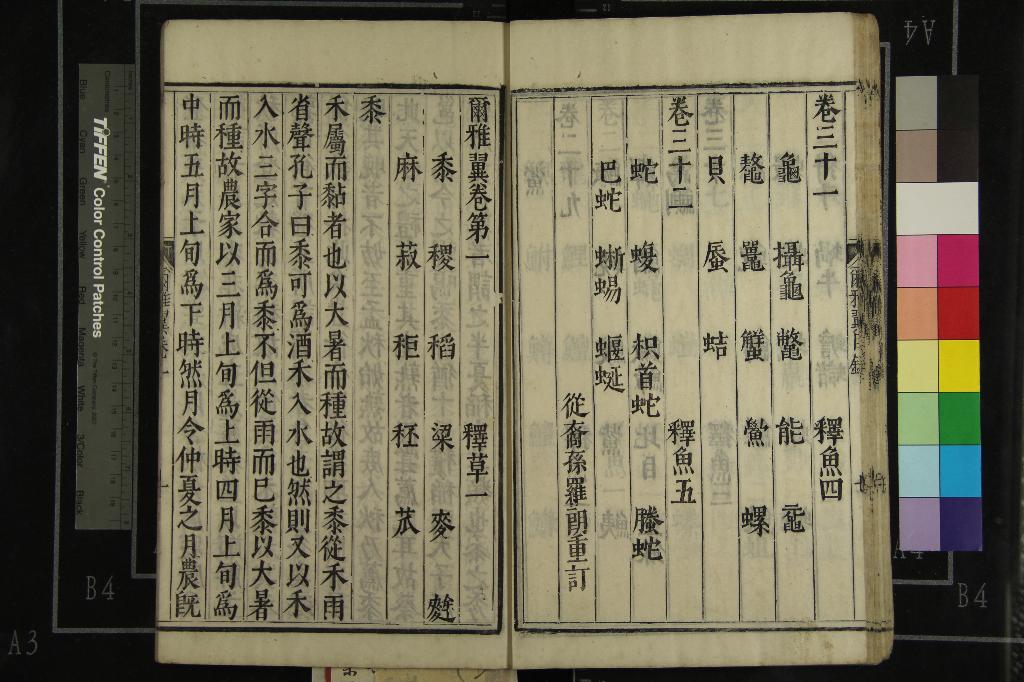 卷三十一 釋魚四
龜 攝龜 鼈 能 黿
鼇 鼉 蟹 鱟 螺
貝 蜃 蛣
卷三十二 釋魚五
蛇 蝮 枳首蛇 螣蛇
巴蛇 蜥蜴 蝘蜓
從裔孫羅朗重訂
爾雅翼卷第一 釋草一
黍 稷 稻 粱 麥
麻 菽 秬 秠 苽
黍
禾屬而黏者也以大暑而種故謂之黍從禾雨
省聲孔子曰黍可爲酒禾入水也然則又以禾
入水三字合而爲黍不但從雨而已黍以大暑
而種故農家以三月上旬爲上時四月上旬爲
中時五月上旬爲下時然月令仲夏之月農旣
TIFFEN Color Control Patches
Blue
Cyan
Green
Yellow
Red
Magenta
White
3/Color
Black
A3
B4
A4
A4
B4